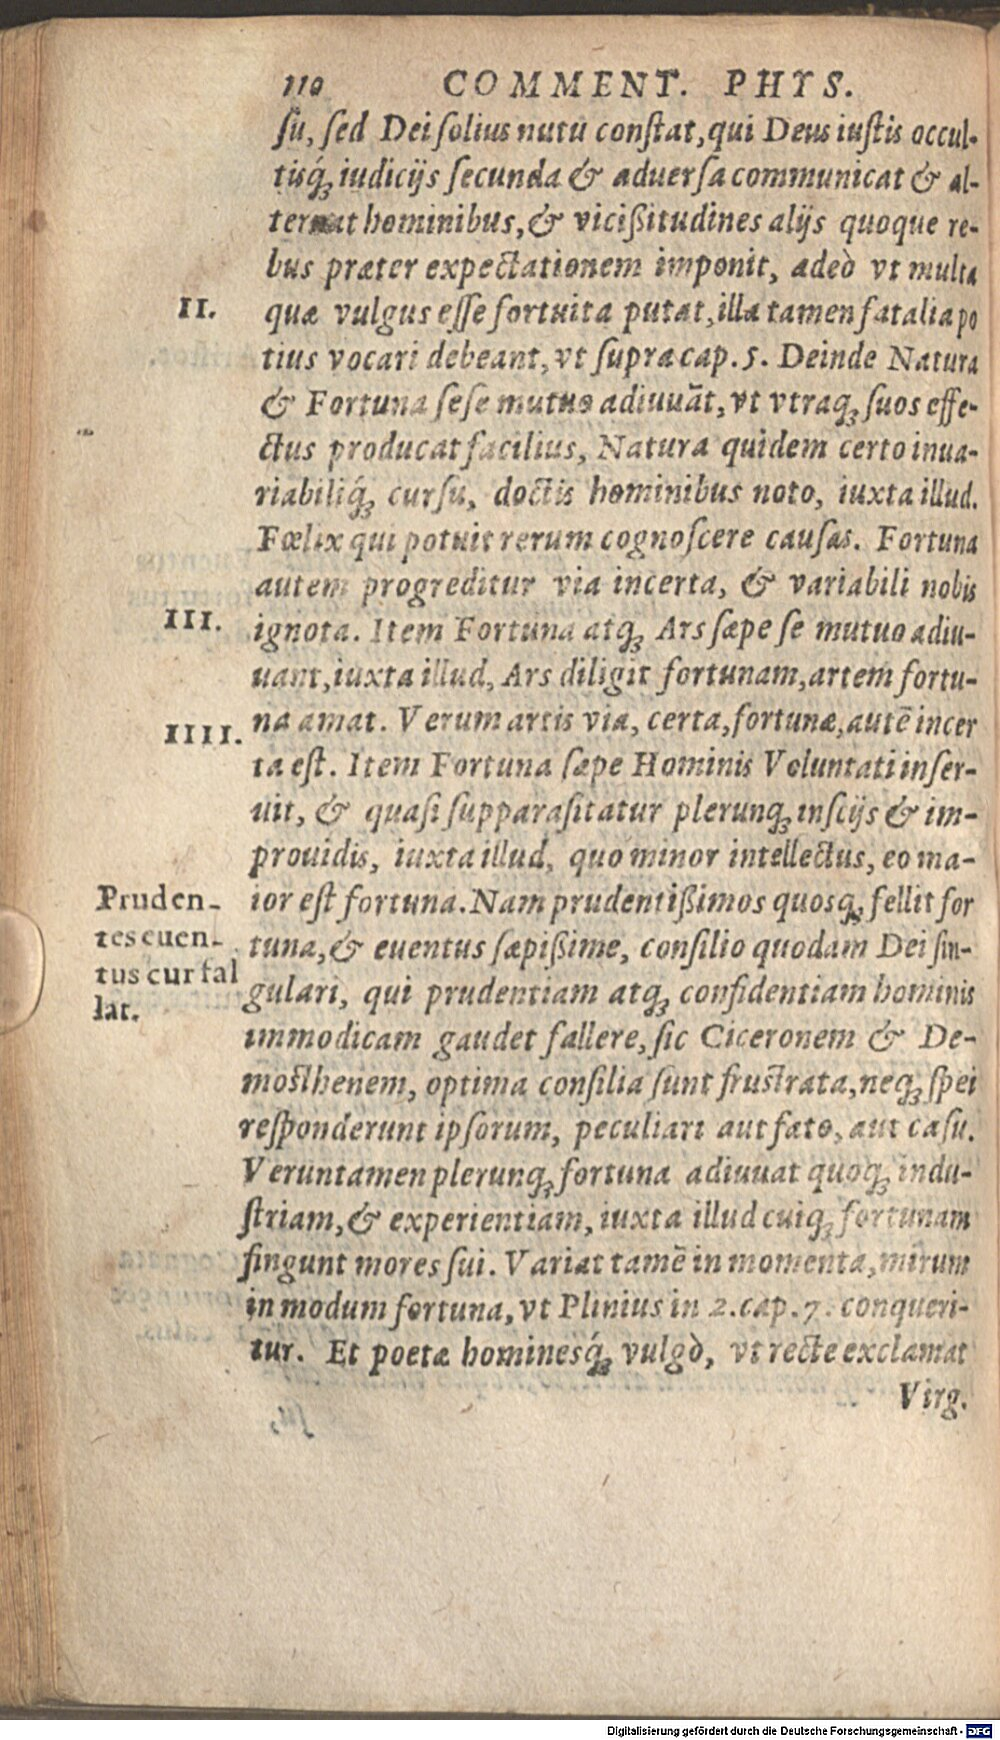 110 COMMENT. PHYS.
su, sed Dei solius nutu constat, qui Deus iustis occul-
tisq́ꝫ iudicijs secunda & aduersa communicat & al-
ternat hominibus, & vicißitudines alijs quoque re-
bus præter expectationem imponit, adeò vt multa
II.
quæ vulgus esse fortuita putat, illa tamen fatalia po
tius vocari debeant, vt supra cap. 5. Deinde Natura
& Fortuna sese mutuo adiuuāt, vt vtraqꝫ suos effe-
ctus producat facilius, Natura quidem certo inua-
riabiliq́ꝫ cursu, doctis hominibus noto, iuxta illud.
Fœlix qui potuit rerum cognoscere causas. Fortuna
autem progreditur via incerta, & variabili nobis
III.
ignota. Item Fortuna atqꝫ Ars sæpe se mutuo adiu-
uant, iuxta illud, Ars diligit fortunam, artem fortu-
na amat. Verum artis via, certa, fortunæ, autē incer
IIII.
ta est. Item Fortuna sæpe Hominis Voluntati inser-
uit, & quasi supparasitatur plerunqꝫ inscijs & im-
prouidis, iuxta illud, quo minor intellectus, eo ma-
Pruden-
tes euen-
tus cur fal
lat.
ior est fortuna. Nam prudentißimos quosqꝫ fellit for
tuna, & euentus sæpißime, consilio quodam Dei sin-
gulari, qui prudentiam atqꝫ confidentiam hominis
immodicam gaudet fallere, sic Ciceronem & De-
mosthenem, optima consilia sunt frustrata, neqꝫ spei
responderunt ipsorum, peculiari aut fato, aut casu.
Veruntamen plerunqꝫ fortuna adiuuat quoqꝫ indu-
striam, & experientiam, iuxta illud cuiqꝫ fortunam
fingunt mores sui. Variat tamē in momenta, mirum
in modum fortuna, vt Plinius in 2. cap. 7. conqueri-
tur. Et poetæ hominesq́ꝫ vulgò, vt recte exclamat
Virg.
Digitalisierung gefördert durch die Deutsche Forschungsgemeinschaft - DFG